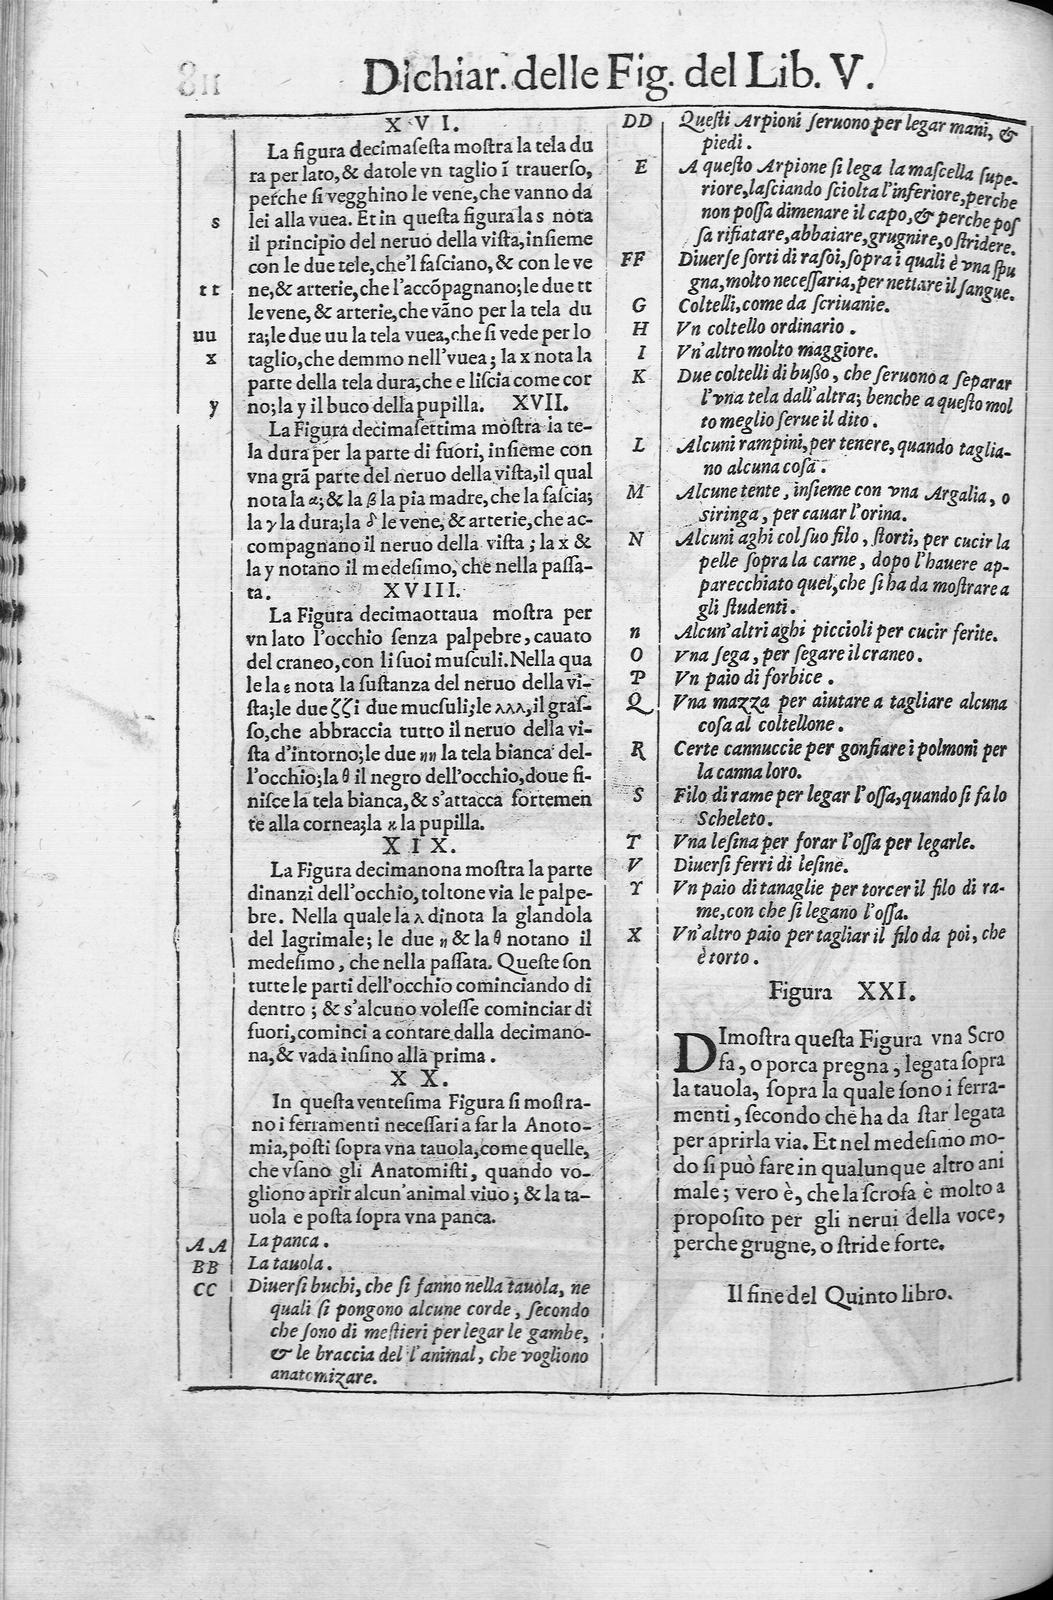 Dichiar. delle Fig. del Lib. V.
XVI.
La figura decimaſeſta moſtra la tela du
ra per lato, & datole vn taglio ĩ trauerſo,
perche ſi vegghino le vene, che vanno da
s lei alla vuea. Et in queſta figura la s nota
il principio del neruo della viſta, inſieme
con le due tele, che'l faſciano, & con le ve
tt ne, & arterie, che l'accõpagnano; le due tt
le vene, & arterie, che vãno per la tela du
uu ra; le due uu la tela vuea, che ſi vede per lo
x taglio, che demmo nell'vuea; la x nota la
parte della tela dura, che e liſcia come cor
y no; la y il buco della pupilla. XVII.
La Figura decimaſettima moſtra la te-
la dura per la parte di fuori, inſieme con
vna grã parte del neruo della viſta, il qual
nota la α; & la β la pia madre, che la faſcia;
la γ la dura; la δ le vene, & arterie, che ac-
compagnano il neruo della viſta; la x &
la y notano il medeſimo, che nella paſſa-
ta. XVIII.
La Figura decimaottaua moſtra per
vn lato l'occhio ſenza palpebre, cauato
del craneo, con li ſuoi muſculi. Nella qua
le la ε nota la ſuſtanza del neruo della vi-
ſta; le due ζζ i due mucſuli; le λλλ, il graſ-
ſo, che abbraccia tutto il neruo della vi-
ſta d'intorno; le due ηη la tela bianca del-
l'occhio; la θ il negro dell'occhio, doue fi-
niſce la tela bianca, & s'attacca fortemen
te alla cornea; la κ la pupilla.
XIX.
La Figura decimanona moſtra la parte
dinanzi dell'occhio, toltone via le palpe-
bre. Nella quale la λ dinota la glandola
del lagrimale; le due η & la θ notano il
medeſimo, che nella paſſata. Queſte ſon
tutte le parti dell'occhio cominciando di
dentro; & s'alcuno voleſſe cominciar di
fuori, cominci a contare dalla decimano-
na, & vada inſino alla prima.
XX.
In queſta venteſima Figura ſi moſtra-
no i ferramenti neceſſari a far la Anoto-
mia, poſti ſopra vna tauola, come quelle,
che vſano gli Anatomiſti, quando vo-
gliono aprir alcun'animal viuo; & la ta-
uola e poſta ſopra vna panca.
AA La panca.
BB La tauola.
CC Diuerſi buchi, che ſi fanno nella tauola, ne
quali ſi pongono alcune corde, ſecondo
che ſono di meſtieri per legar le gambe,
& le braccia del l'animal, che vogliono
anatomizare.
DD Queſti Arpioni ſeruono per legar mani, &
piedi.
E A queſto Arpione ſi lega la maſcella ſupe-
riore, laſciando ſciolta l'inferiore, perche
non poſſa dimenare il capo, & perche poſ
ſa rifiatare, abbaiare, grugnire, o ſtridere.
FF Diuerſe ſorti di raſoi, ſopra i quali è vna ſpu
gna, molto neceſſaria, per nettare il ſangue.
G Coltelli, come da ſcriuanie.
H Vn coltello ordinario.
I Vn'altro molto maggiore.
K Due coltelli di buſſo, che ſeruono a ſeparar
l'vna tela dall'altra; benche a queſto mol
to meglio ſerue il dito.
L Alcuni rampini, per tenere, quando taglia-
no alcuna coſa.
M Alcune tente, inſieme con vna Argalia, o
siringa, per cauar l'orina.
N Alcuni aghi col ſuo filo, ſtorti, per cucir la
pelle ſopra la carne, dopo l'hauere ap-
parecchiato quel, che ſi ha da moſtrare a
gli ſtudenti.
n Alcun'altri aghi piccioli per cucir ferite.
O Vna ſega, per ſegare il craneo.
P Vn paio di forbice.
Q Vna mazza per aiutare a tagliare alcuna
coſa al coltellone.
R Certe cannuccie per gonfiare i polmoni per
la canna loro.
S Filo di rame per legar l'oſſa, quando ſi fa lo
Scheleto.
T Vna leſina per forar l'oſſa per legarle.
V Diuerſi ferri di leſine.
Y Vn paio di tanaglie per torcer il filo di ra-
me, con che ſi legano l'oſſa.
X Vn'altro paio per tagliar il filo da poi, che
è torto.
Figura XXI.
DImoſtra queſta Figura vna Scro
fa, o porca pregna, legata ſopra
la tauola, ſopra la quale ſono i ferra-
menti, ſecondo che ha da ſtar legata
per aprirla via. Et nel medeſimo mo-
do ſi può fare in qualunque altro ani
male; vero è, che la ſcrofa è molto a
propoſito per gli nerui della voce,
perche grugne, o ſtride forte.
Il fine del Quinto libro.